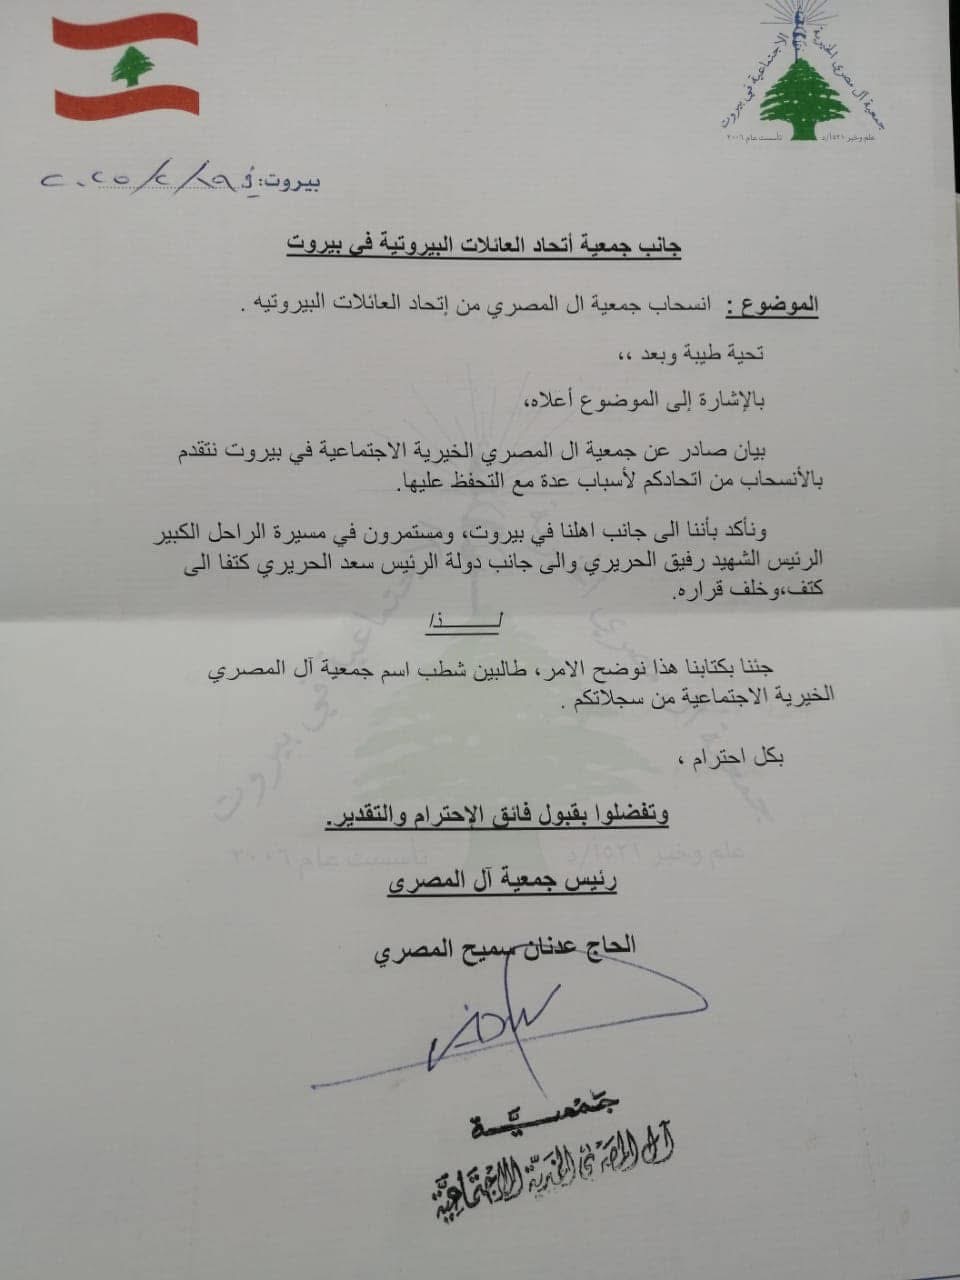 جمعية آل مصري الخيرية الاجتماعية في بيروت
علم وخبر ١٥٢١/د تأسست عام ٢٠٠٦
بيروت: في
جانب جمعية أتحاد العائلات البيروتية في بيروت
الموضوع : انسحاب جمعية ال المصري من إتحاد العائلات البيروتيه .
تحية طيبة وبعد ،،
بالإشارة إلى الموضوع أعلاه،
بيان صادر عن جمعية ال المصري الخيرية الاجتماعية في بيروت نتقدم
بالأنسحاب من اتحادكم لأسباب عدة مع التحفظ عليها.
ونأكد بأننا الى جانب اهلنا في بيروت، ومستمرون في مسيرة الراحل الكبير
الرئيس الشهيد رفيق الحريري والى جانب دولة الرئيس سعد الحريري كتفا الى
كتف،وخلف قراره.
لــــــذا/
جئنا بكتابنا هذا نوضح الامر، طالبين شطب اسم جمعية آل المصري
الخيرية الاجتماعية من سجلاتكم .
بكل احترام ،
وتفضلوا بقبول فائق الإحترام والتقدير.
رئيس جمعية آل المصري
الحاج عدنان سميح المصري
جمعيــــة
آل المصري الخيرية الإجتماعية